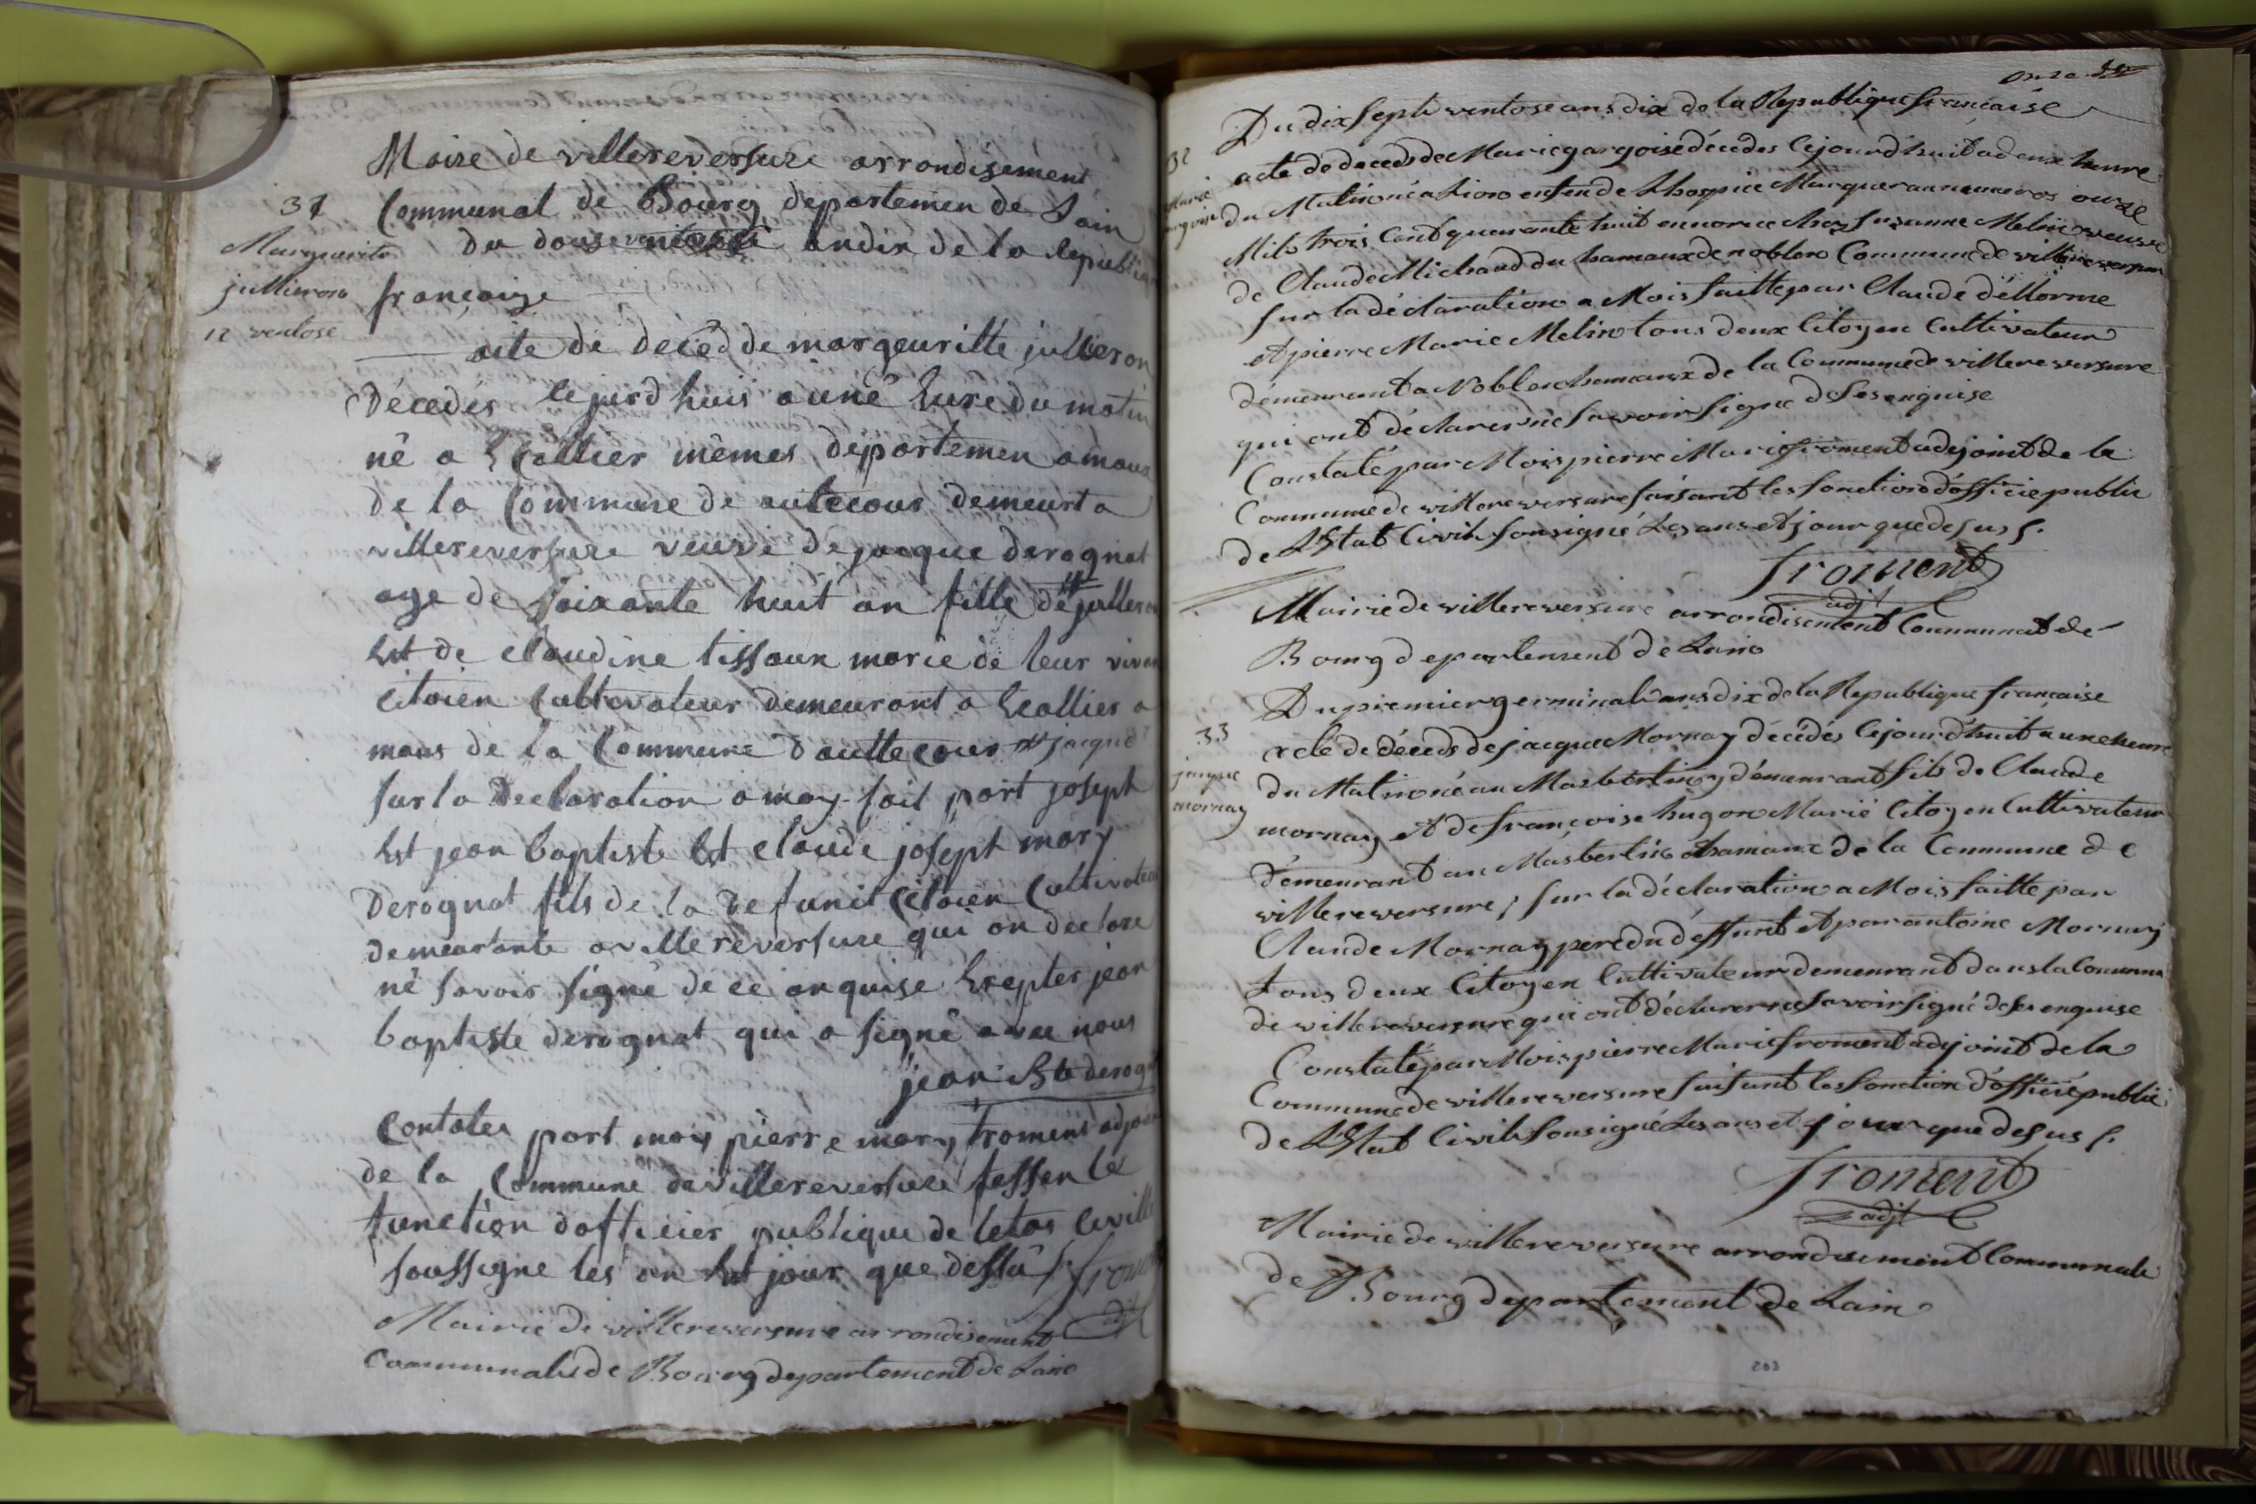 37
Marguerite
jullieron
12 ventose
Maire de villereversure arrondisement
Communal de Bourg departemen de Lain
du douse ventosse andix de la republi
françoize
acte de décéd de margeuritte jullieron
Décedés lejurd huis a une hure du matin
né a hcallier mêmes departemen amaux
de la Commune de autecour demeurt a
villereversure veuve de jacque derognat
age de soixante huit an fille de julleron
Est de claudine tissaux marie de leur vivan
Citoien Cultevateur demeurant a hcallier a
maus de la Commune d'aultecour jacque
sur la Declaration a moy fait part joseph
Est jean baptiste Est claude joseph mary
Derognat fils de la defunct Citoien Cultivateur
demeurante a villereversure qui on declare
né savoir signé de ce anquise Excepter jean
baptiste derognat qui a signé avec nous
jean Bte derogn
Contater part moy pierre mary froment adjoin
de la Commune de villereversure fessen le
function d'officier publique de letas Civille
soussigne les an Est jour que dessu S. From
adjt
Mairie de villereversure arrondisement
Communale de Bourg departement de Lain
onze
32
Marie
gargoise
Du dix septe ventose ans dix de la Republique francaise
acte de deceds de Marie gargoise décédés lejourd'huit a deux heure
du Matin néa Lion enfen de Lhospice Marquer au numeros ouze
Mils trois Cent quarante huit en norice chez Suzanne Melin veuve
de Claude Michaud du hamaux de noblens Commune de villereversure
sur la déclaration a Mois faitte par Claude déllorme
et pierre Marie Melin tous deux Citoyen Cultivateur
démeurant a Noblens hamaux de la Commune de villereversure
qui ont déclarer né savoir signe de ses enquise
Constaté par Mois pierre Marie froment adejoint de la
Commune de villereversure faisant les fonction d'officie public
de L'Etat Civil sousigné Les ans et jour que desus S.
froment
adjt
Mairie de villereversure arrondisement Communal de
Bourg departement de Lain
33
jacque
mornay
Du premier germinal ans dix de la Republique francaise
acte de décéds de jacque Mornay décédés lejourd'huit a une heure
du Matin né au Masbertin y démeurant fils de Claude
mornay et de françoise hugon Marié Citoyen Cultivateur
démeurant au Masbertin hamaux de la Commune de
villereversure, sur la déclaration a Mois faitte par
Claude Mornay pere du déffunt et par antoine Mornay
tous deux Citoyen Cultivateur demeurant dans la Commune
de villereversure qui ont déclarer né savoir signé de ses enquise
Constaté par Mois pierre Marie froment adejoint de la
Commune de villereversure faisant les fonction d'officié public
de L'Etat Civil sousigné Les ans et jour que desus S.
froment
adjt
Mairie de villereversure arrondisement Communale
de Bourg departement de Lain
203